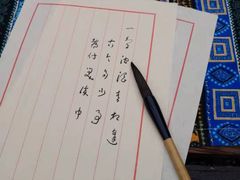 一壶浊酒喜相逢
古今多少事
都付笑谈中